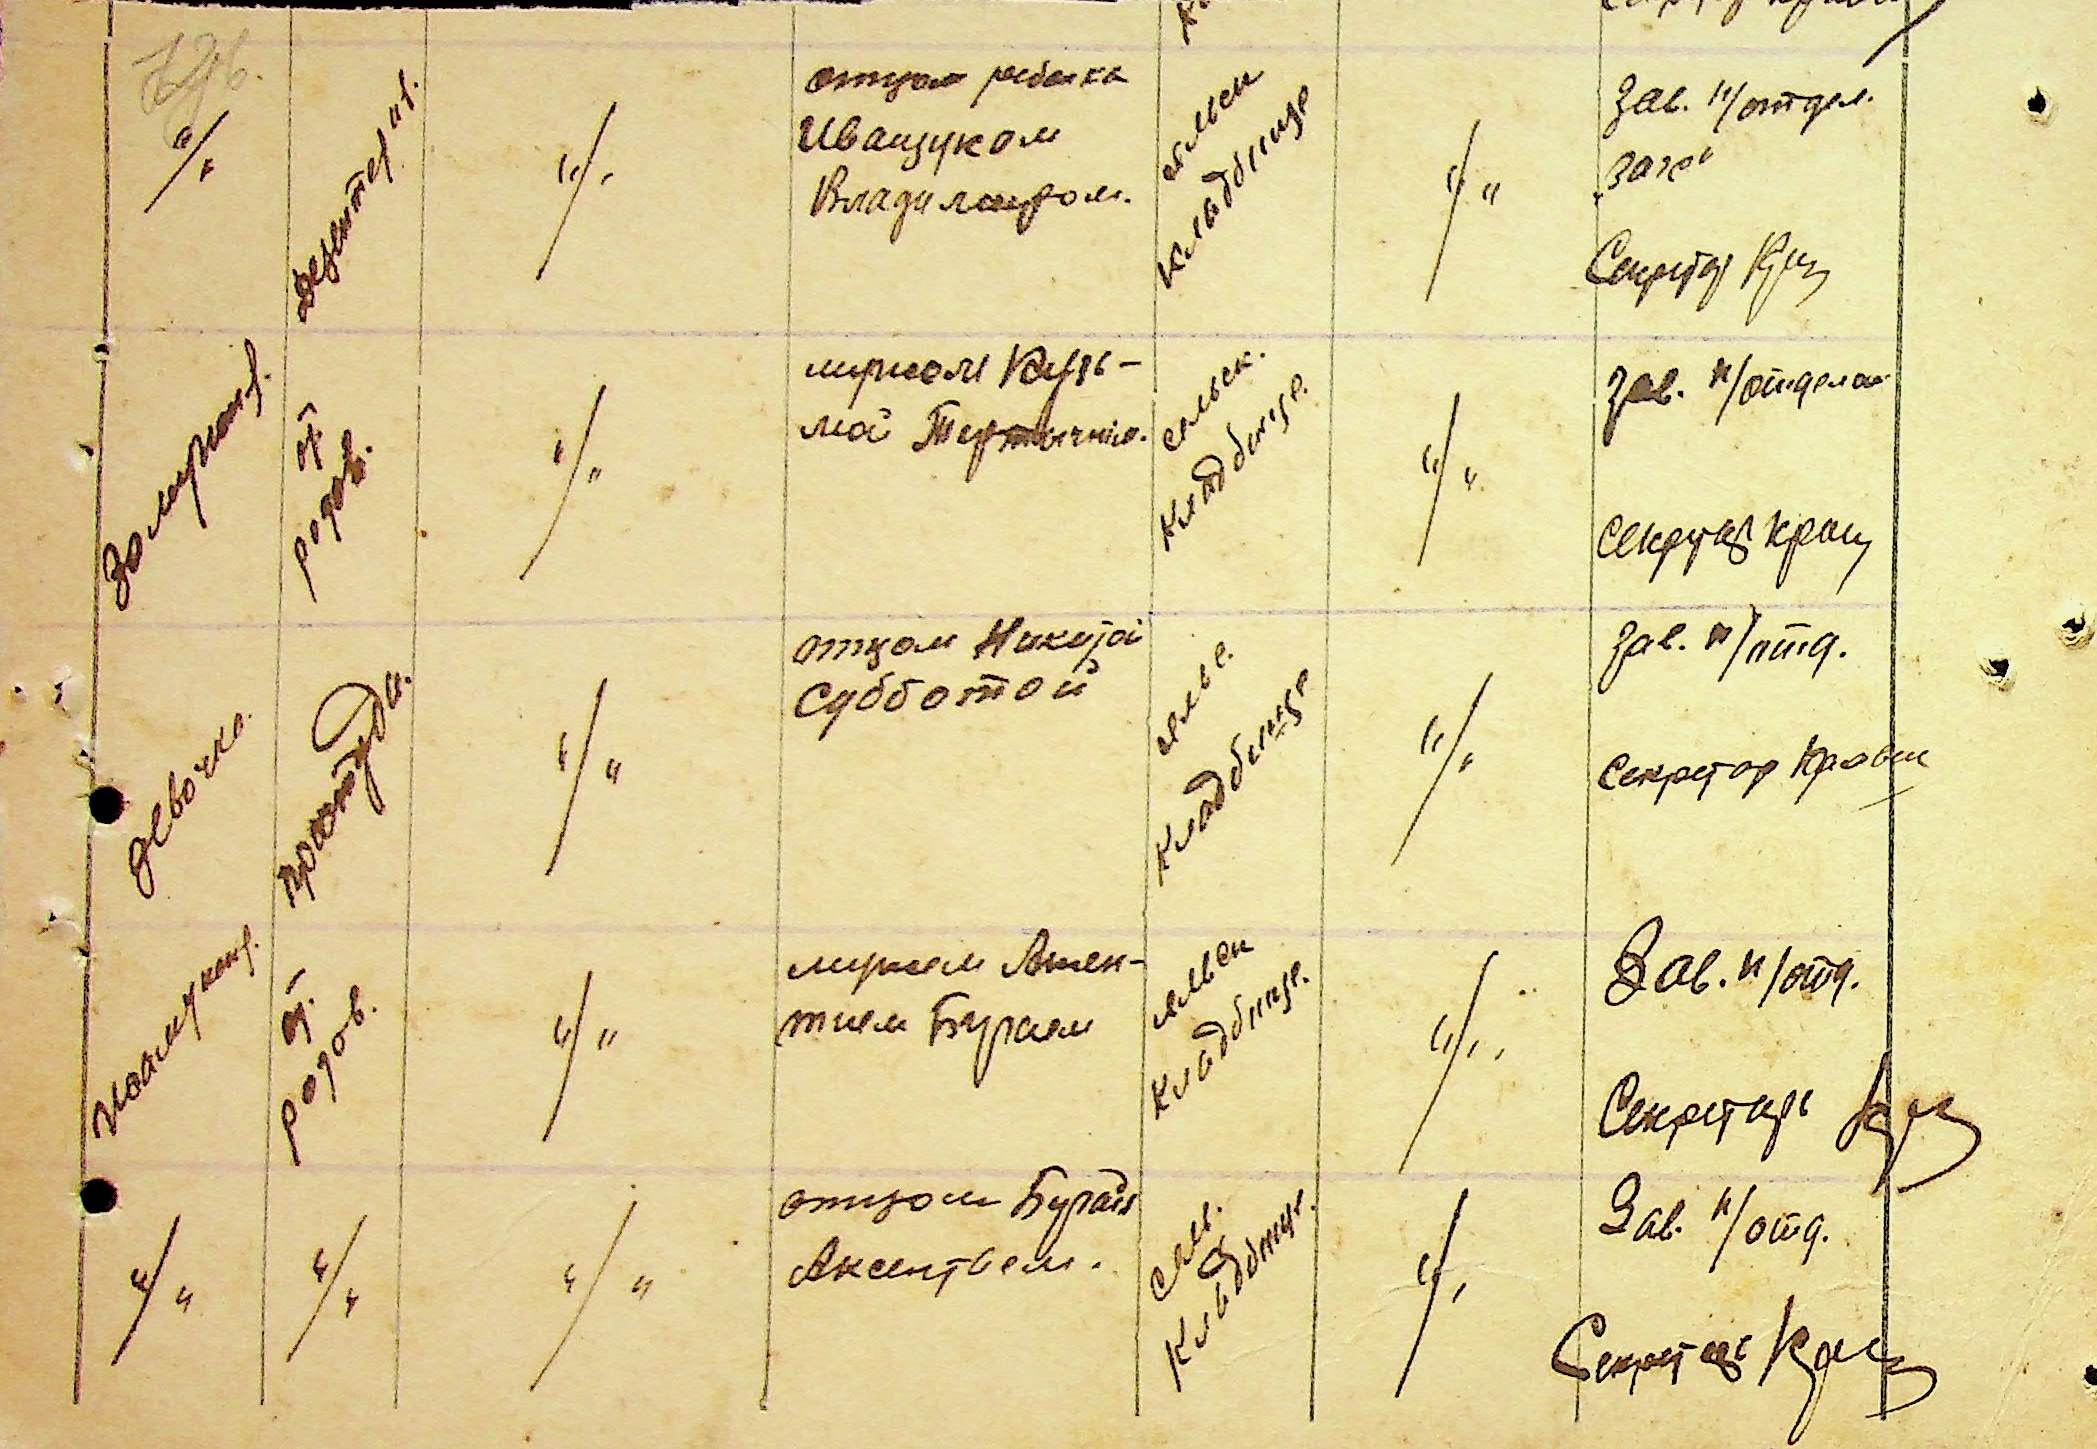 "/"
дезентерия.
"/"
отцом ребенка
Иващуком
Владимиром.
сельск
кладбище
"/"
Зав. п/отдел.
загс
Секретарь
Замужняя.
от
родов.
"/"
мужем Кузь-
мой
сельск.
кладбище.
"/"
Зав. п/отделом
Секретарь
девочка.
простуда.
"/"
отцом Никитой
Субботой
сельс.
кладбище
"/"
Зав. п/отд.
Секретар
от
родов.
"/"
мужем Аксен-
тием Бугаем
сельск
кладбище.
"/"
Зав. п/отд.
Секретарь
"/"
"/"
"/"
отцом Бугай
Аксентьем.
сель.
кладбище.
"/"
Зав. п/отд.
Секретарь